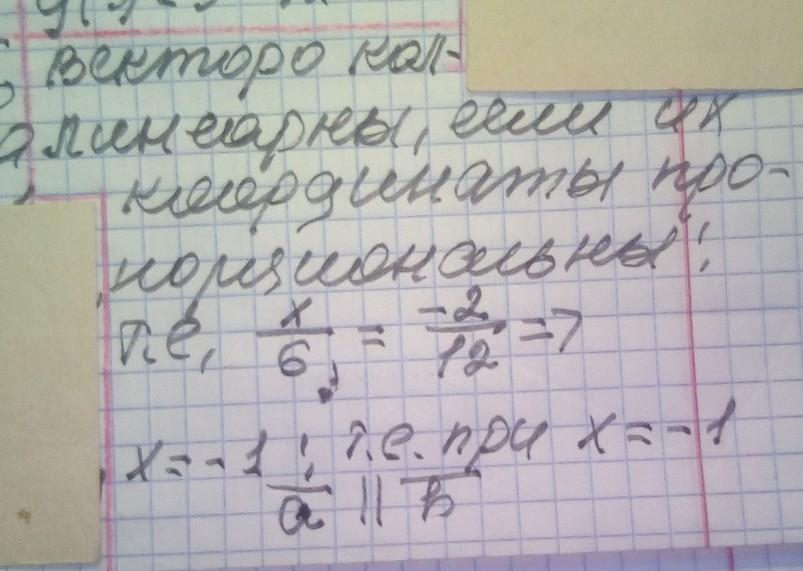 векторо кол-
линеарны, если их
координаты про-
порциональны:
т.е, x/6 = -2/12 =>
x = -1 ; т.е. при x = -1
a || b